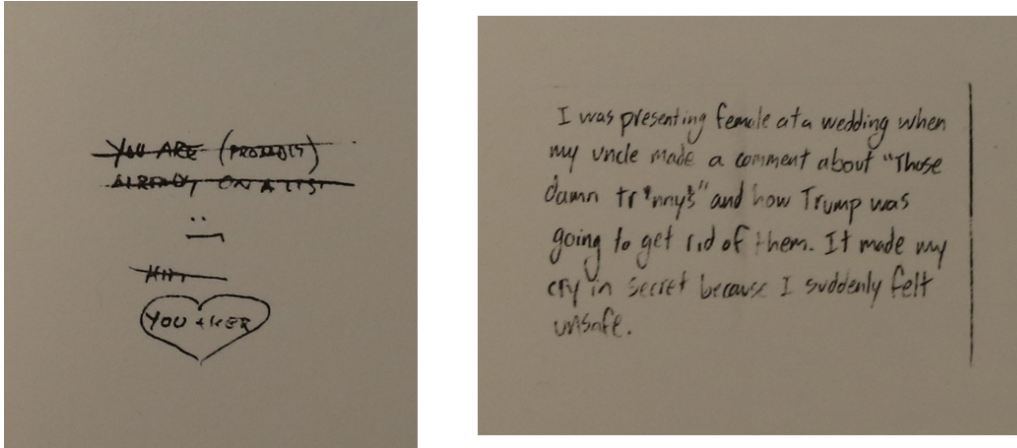 YOU ARE (PROBABLY)
ALREADY ON A LIST
YOU + HER
I was presenting female at a wedding when
my uncle made a comment about "Those
damn tr*nny's" and how Trump was
going to get rid of them. It made my
cry in secret because I suddenly felt
unsafe.